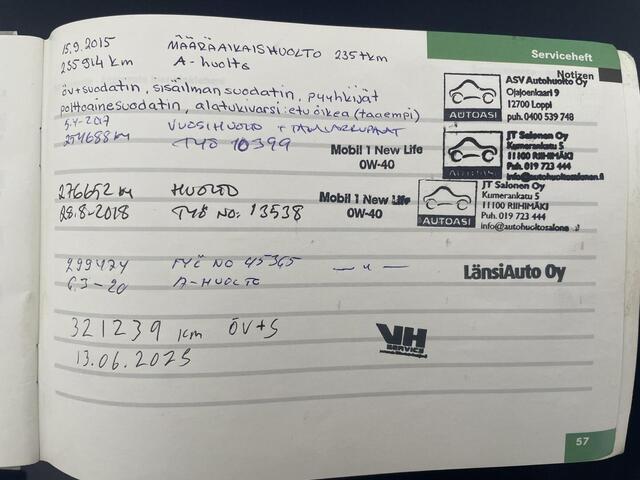 Serviceheft
Notizen
15.9.2015 MÄÄRÄAIKAISHUOLTO 235tkm
235914 km A-huolto
öv+suodatin, sisäilman suodatin, pyyhkijät
polttoainesuodatin, alatukivarsi: etu oikea (taaempi)
ASV Autohuolto Oy
Ojajoenkaari 9
12700 Loppi
puh. 0400 539 748
AUTOASI
5.4-2017 VUOSIHUOLTO + JARRUPALAT
254688 KM TYÖ 10399
Mobil 1 New Life
0W-40
JT Salonen Oy
Kumerankatu 5
11100 RIIHIMÄKI
Puh. 019 723 444
info@autohuoltosalonen.fi
AUTOASI
276652 KM HUOLTO
28.8-2018 TYÖ NO: 13538
Mobil 1 New Life
0W-40
JT Salonen Oy
Kumerankatu 5
11100 RIIHIMÄKI
Puh. 019 723 444
info@autohuoltosalone
AUTOASI
299474 TYÖ NO 45365 — 〃 —
6.3-20 A-HUOLTO
LänsiAuto Oy
321239 km ÖV+S
13.06.2025
VH
SERVICE
57